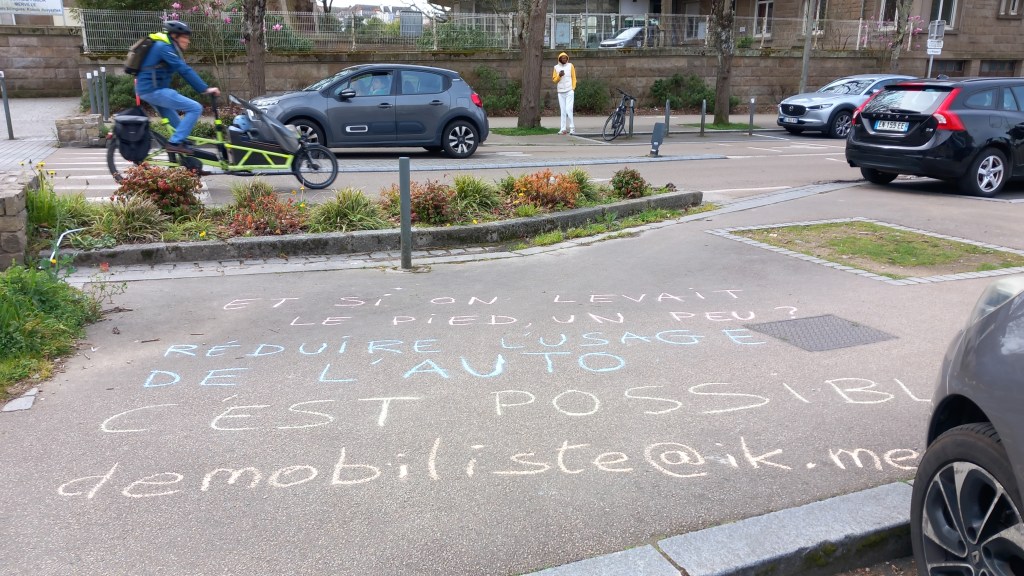 ET SI ON LEVAIT
LE PIED, UN PEU ?
RÉDUIRE L'USAGE
DE L'AUTO
C'EST POSSIBL
demobiliste@ik.me